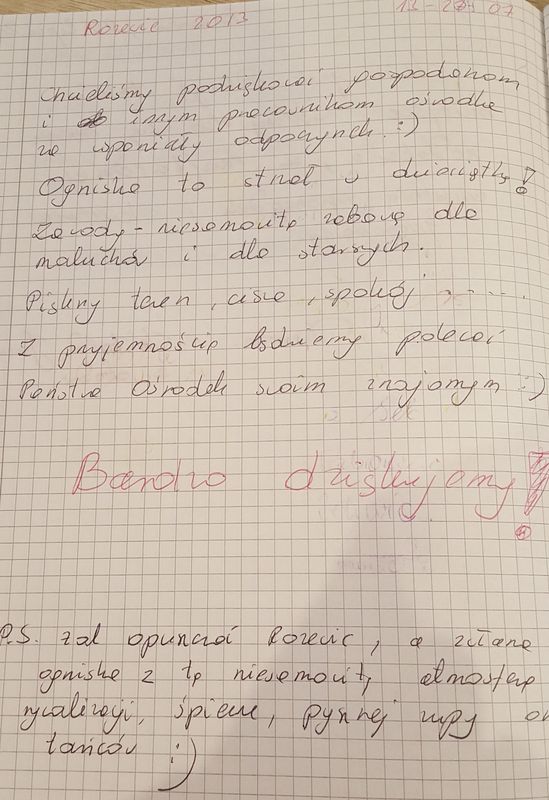 Rozewie 2013
13 - 20 07
Chcieliśmy podziękować gospodarzom
i innym pracownikom ośrodka
za wspaniały odpoczynek. :)
Ognisko to strzał w dziesiątkę!
Zawody - niesamowita zabawa dla
maluchów i dla starszych.
Piękny teren, cisza, spokój .....
Z przyjemnością będziemy polecać
Państwa Ośrodek swoim znajomym :)
Bardzo dziękujemy!
P.S. żal opuszczać Rozewie, a zwłaszcza
ognisko z tą niesamowitą atmosferą
rywalizacji, śpiewu, pysznej zupy
tańców :)